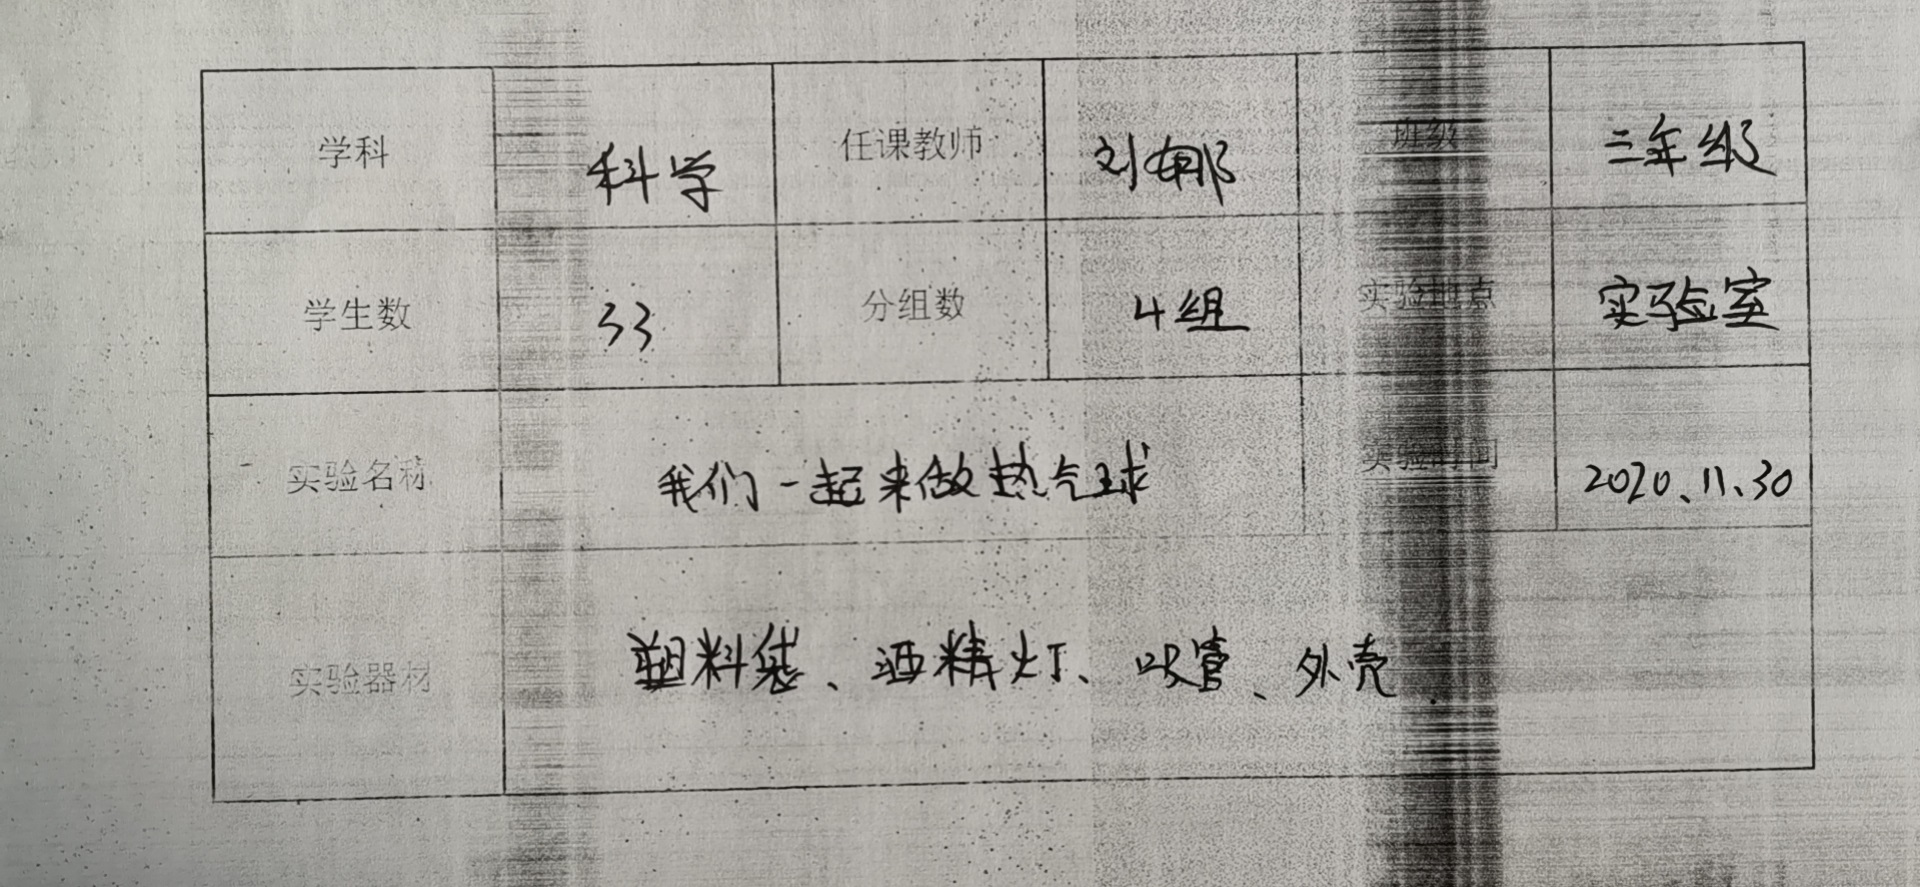 学科 科学 任课教师 刘娜 班级 三年级
学生数 33 分组数 4组 实验地点 实验室
实验名称 我们一起来做热气球 实验时间 2020、11、30
实验器材 塑料袋、酒精灯、吸管、外壳